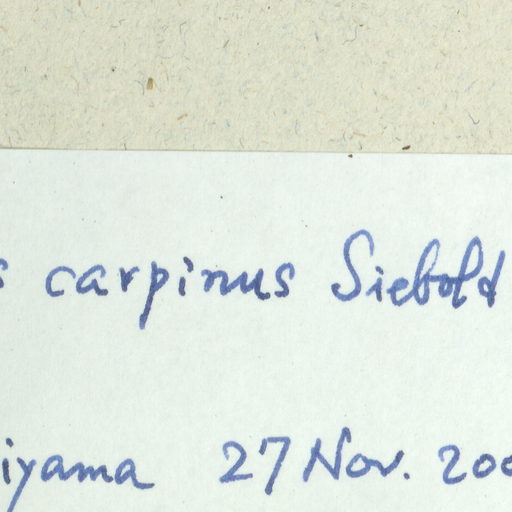 s carpinus Siebold
iyama 27 Nov. 200